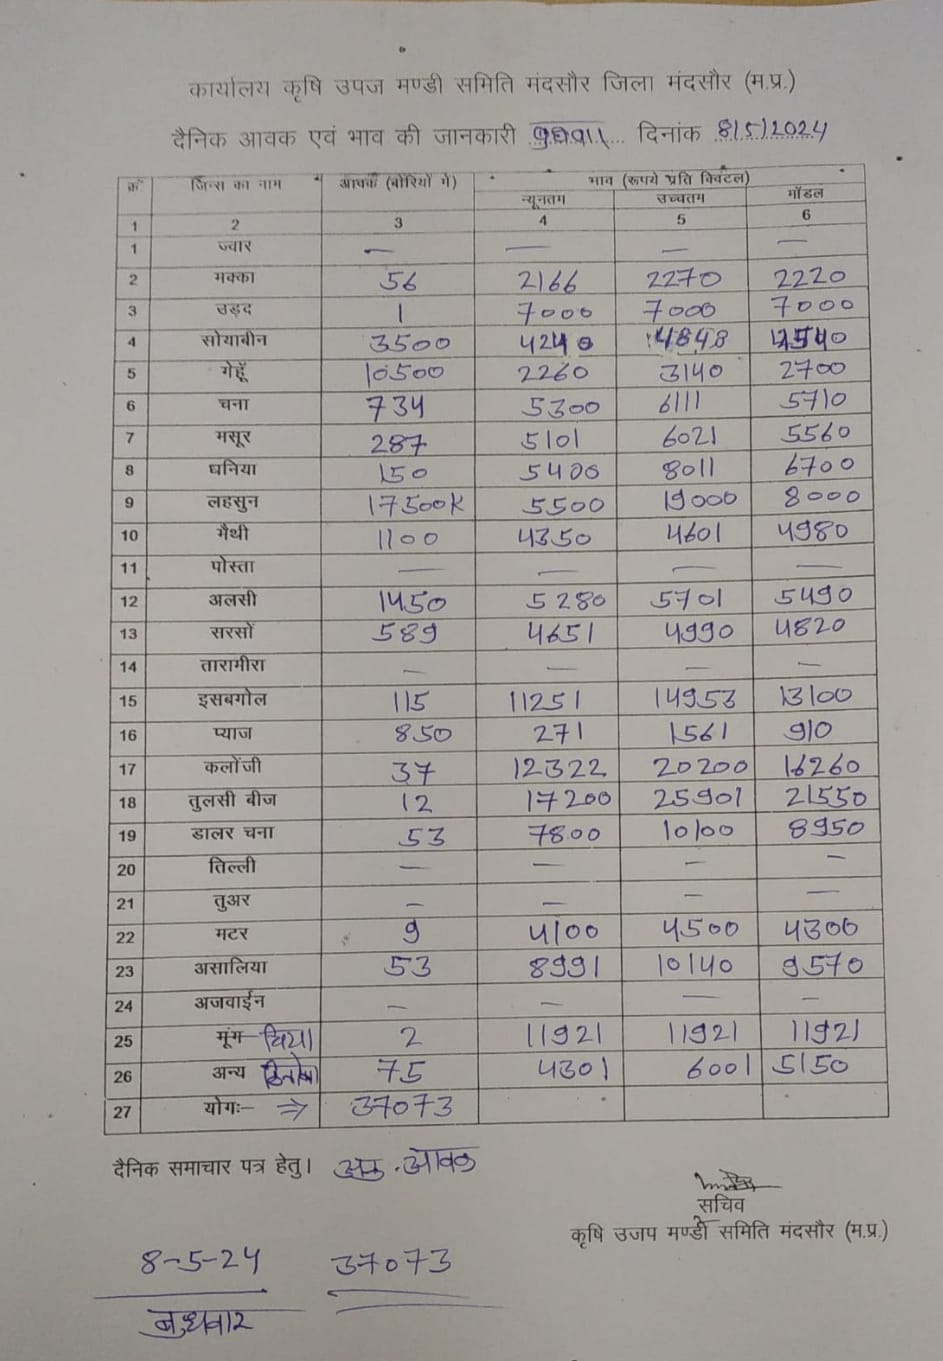 कार्यालय कृषि उपज मण्डी समिति मंदसौर जिला मंदसौर (म.प्र.)
दैनिक आवक एवं भाव की जानकारी बुधवार दिनांक 8/5/2024
क्रं जिन्स का नाम आवक (बोरियों में) भाव (रूपये प्रति क्विंटल)
न्यूनतम उच्चतम मॉडल
1 2 3 4 5 6
1 ज्वार — — — —
2 मक्का 56 2166 2270 2220
3 उड़द 1 7000 7000 7000
4 सोयाबीन 3500 4240 4848 4540
5 गेहूँ 10500 2260 3140 2700
6 चना 734 5300 6111 5710
7 मसूर 287 5101 6021 5560
8 धनिया 150 5400 8011 6700
9 लहसुन 17500K 5500 19000 8000
10 मैथी 1100 4350 4601 4980
11 पोस्ता — — — —
12 अलसी 1450 5280 5701 5490
13 सरसों 589 4651 4990 4820
14 तारामीरा — — — —
15 इसबगोल 115 11251 14953 13100
16 प्याज 850 271 1561 910
17 कलोंजी 37 12322 20200 16260
18 तुलसी बीज 12 17200 25901 21550
19 डालर चना 53 7800 10100 8950
20 तिल्ली — — — —
21 तुअर — — — —
22 मटर 9 4100 4500 4300
23 असालिया 53 8991 10140 9570
24 अजवाईन — — — —
25 मूंग- चिया 2 11921 11921 11921
26 अन्य 75 4301 6001 5150
27 योगः- ⇒ 37073
दैनिक समाचार पत्र हेतु। आवक
सचिव
कृषि उजप मण्डी समिति मंदसौर (म.प्र.)
8-5-24 37073
बुधवार